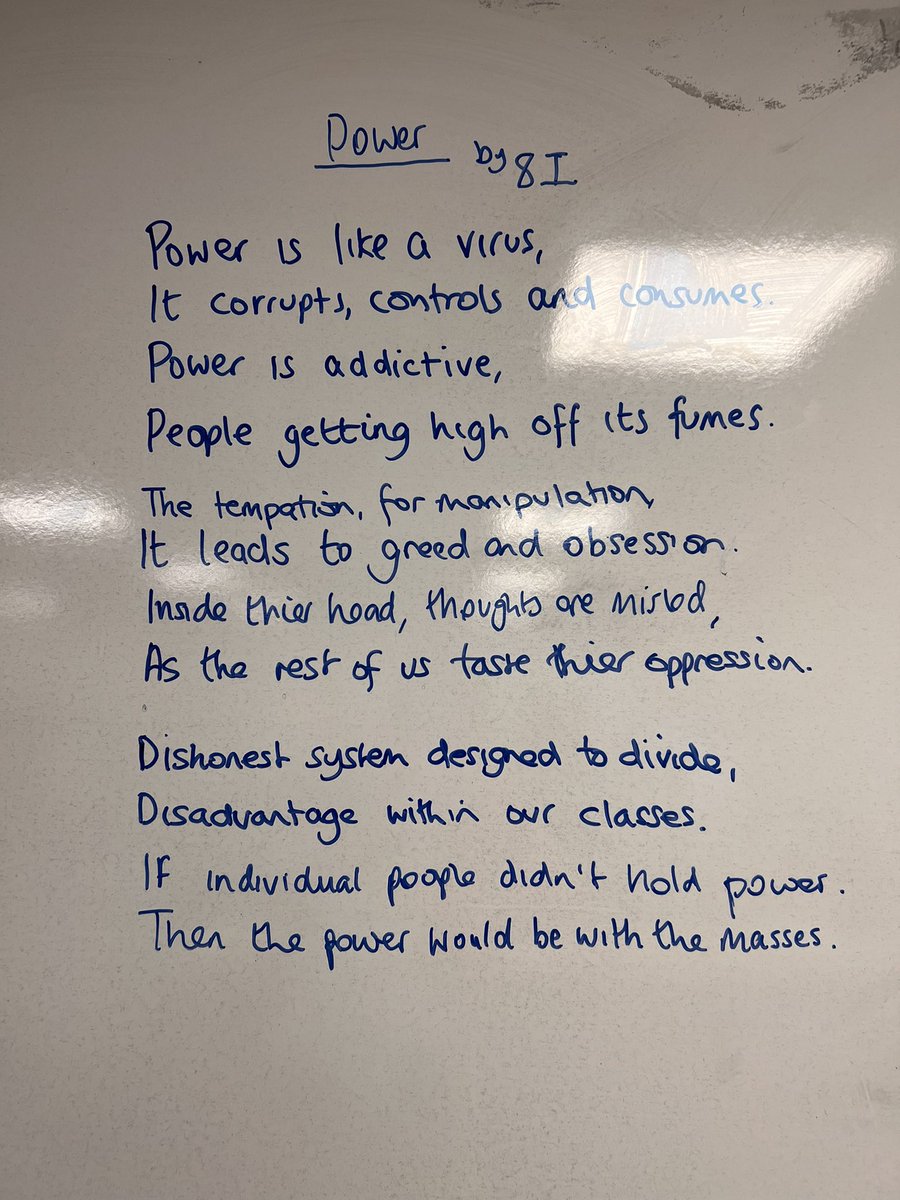 Power by 8I
Power is like a virus,
It corrupts, controls and consumes.
Power is addictive,
People getting high off its fumes.
The tempation, for manipulation,
It leads to greed and obsession.
Inside thier head, thoughts are misled,
As the rest of us taste thier oppression.
Dishonest system designed to divide,
Disadvantage within our classes.
If individual people didn't hold power.
Then the power would be with the masses.